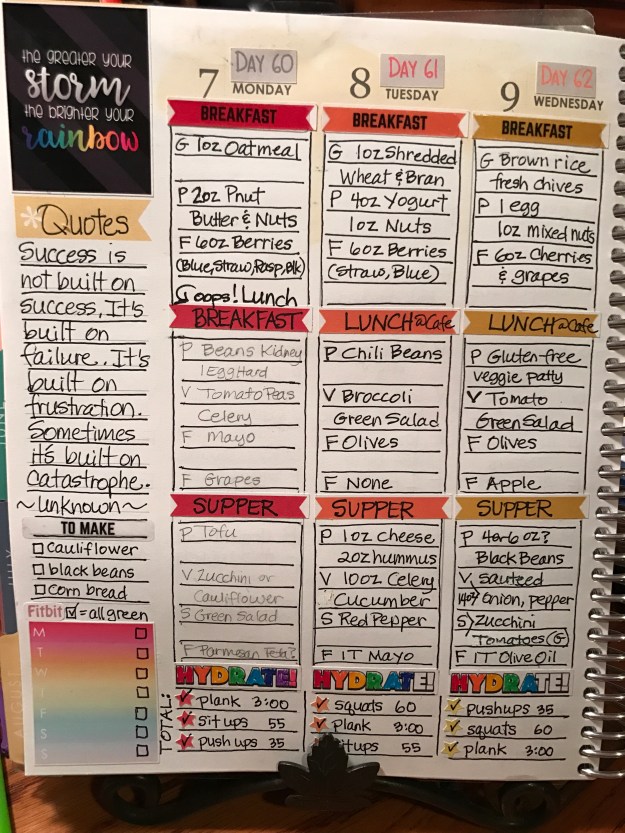 the greater your
storm
the brighter your
rainbow
*Quotes
Success is
not built on
success, It's
built on
failure. It's
built on
frustration.
Sometimes
it's built on
Catastrophe.
~unknown~
TO MAKE
Cauliflower
black beans
corn bread
Fitbit = all green
M
T
W
T
F
S
S
7 DAY 60
MONDAY
BREAKFAST
G 1oz Oatmeal
P 2oz Pnut
Butter & Nuts
F 6oz Berries
(Blue, Straw, Rasp, Blk)
Goops! Lunch
BREAKFAST
P Beans Kidney
1 Egg Hard
V Tomato Peas
Celery
F Mayo
F Grapes
SUPPER
P Tofu
V Zucchini or
Cauliflower
S Green Salad
F Parmesan Feta?
HYDRATE!
TOTAL:
plank 3:00
sit ups 55
push ups 35
8 DAY 61
TUESDAY
BREAKFAST
G 1oz Shredded
Wheat & Bran
P 4oz Yogurt
1oz Nuts
F 6oz Berries
(Straw, Blue)
LUNCH@Cafe
P Chili Beans
V Broccoli
Green Salad
F Olives
F None
SUPPER
P 1oz cheese
2oz hummus
V 10oz Celery
Cucumber
S Red Pepper
F 1T Mayo
HYDRATE!
squats 60
plank 3:00
itups 55
9 DAY 62
WEDNESDAY
BREAKFAST
G Brown rice
fresh chives
P 1 egg
1oz mixed nuts
F 6oz Cherries
& grapes
LUNCH@Cafe
P Gluten-free
veggie patty
V Tomato
Green Salad
F Olives
F Apple
SUPPER
P 4or6 oz?
Black Beans
V sauteed
onion, pepper
S Zucchini
Tomatoes (G)
F 1T Olive Oil
HYDRATE!
pushups 35
squats 60
plank 3:00
JULY
AUGUST